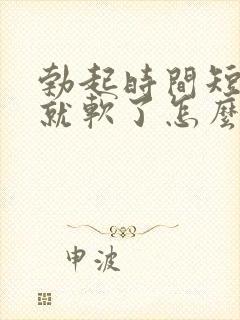 勃起時間短
就軟了怎麼
申波